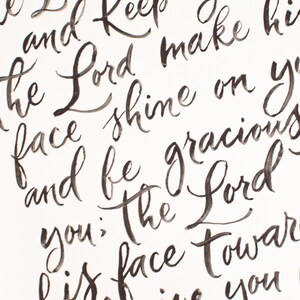 and keep
the Lord make hi
face shine on yo
and be gracious
you; the Lord
his face towar
you